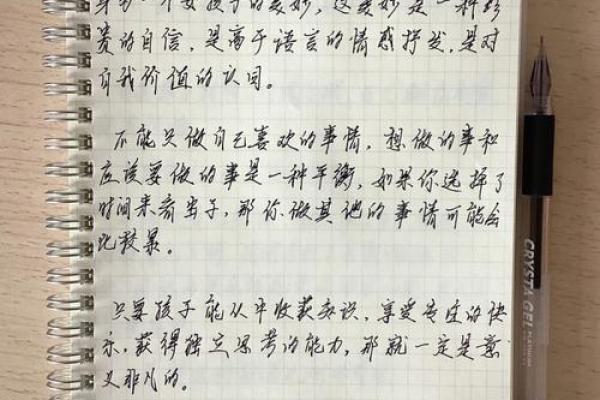 一个女孩子的美妙，这美妙是一种珍
贵的自信，是高于语言的情感抒发，是对
自我价值的认同。
不能只做自己喜欢的事情，想做的事和
应该要做的事是一种平衡，如果你选择了
时间来子，那你做其他的事情可能会
比较累。
只要孩子能从中收获知识，享受专注的快
乐，获得独立思考的能力，那就一定是意
义非凡的。
CRYSTA GEL PLATINUM